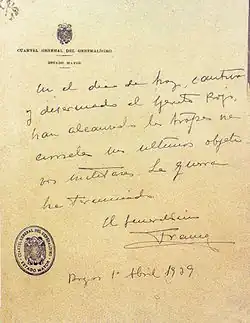 CUARTEL GENERAL DEL GENERALÍSIMO
ESTADO MAYOR
En el dia de hoy, cautivo
y desarmado el Ejercito Rojo,
han alcanzado las tropas na-
cionales sus ultimos objeti
vos militares. La guerra
ha terminado.
El Generalísimo
Franco
Burgos 1º Abril 1939
CUARTEL GENERAL DEL GENERALISIMO
ESTADO MAYOR